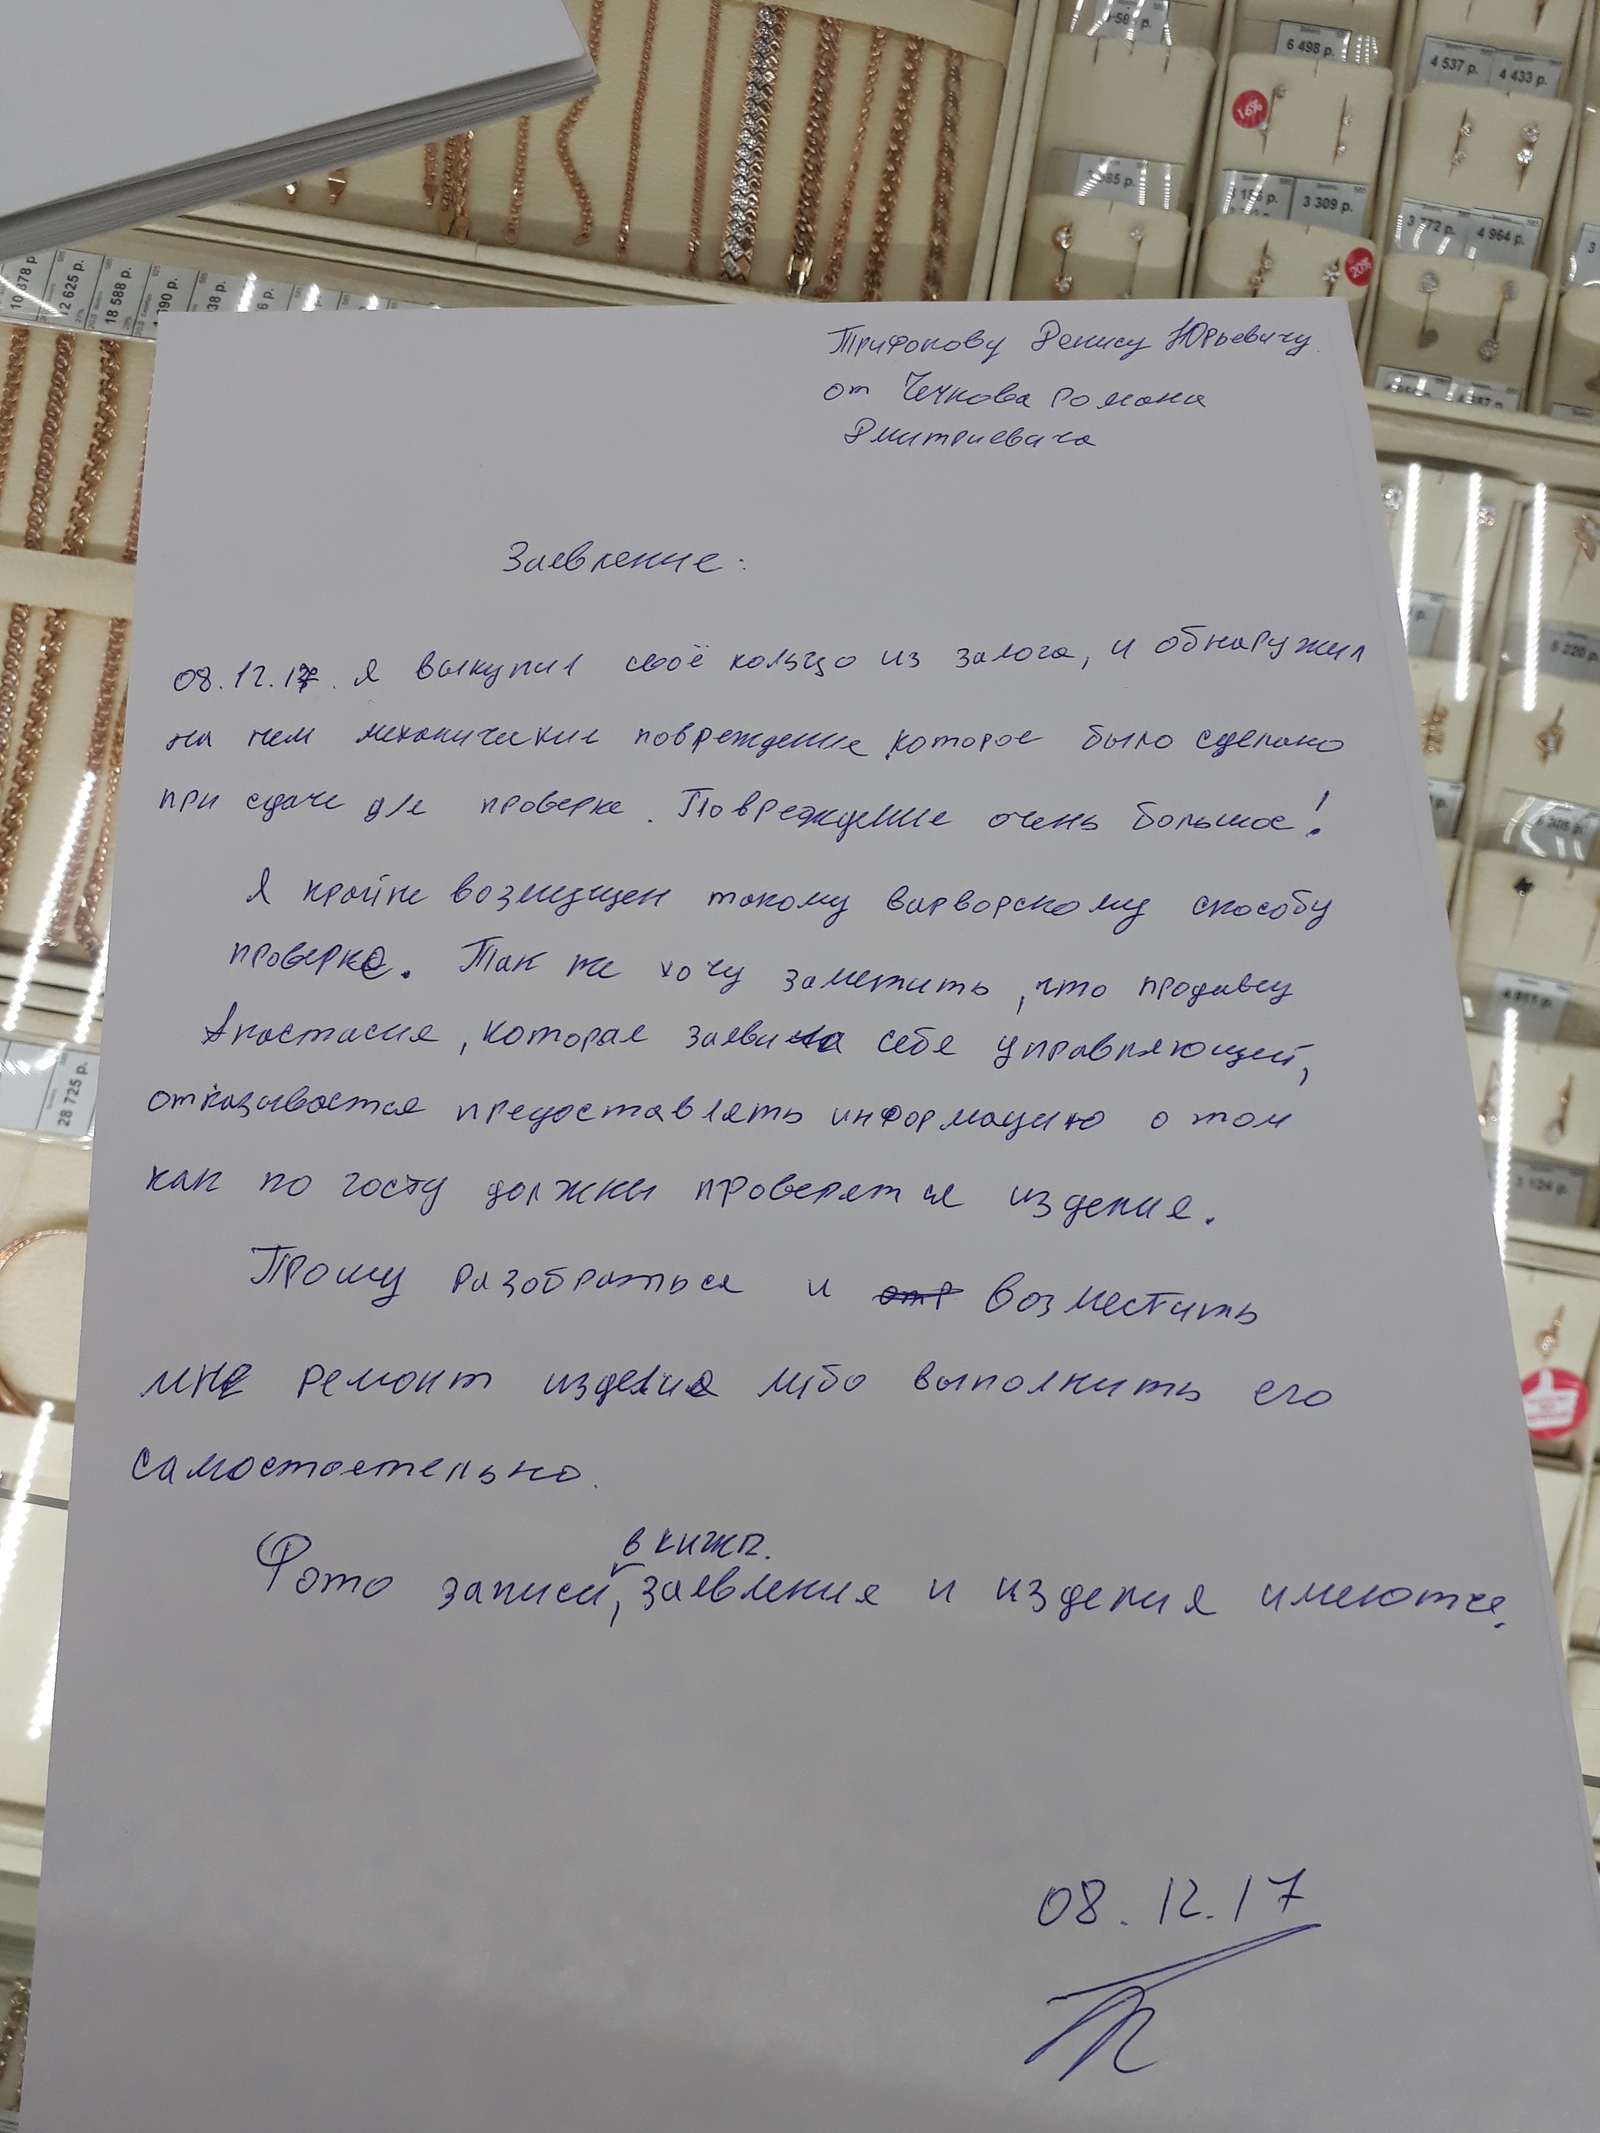 6 498 р.
4 537 р. 4 433 р.
16%
3 309 р.
3 772 р. 4 964 р.
20%
12 625 р.
18 588 р.
Трифонову Денису Юрьевичу
от Чечкова Романа
Дмитриевича
Заявление:
08.12.17. Я выкупил своё кольцо из залога, и обнаружил
на нем механические повреждение, которое было сделано
при сдаче для проверке. Повреждение очень большое!
Я крайне возмущен такому варворскому способу
проверке. Так же хочу заметить, что продавец
Анастасия, которая заявила себя управляющей,
отказывается предоставлять информацию о том
как по госту должны проверятся изделия.
Прошу разобраться и отр возместить
мне ремонт изделие либо выполнить его
самостоятельно.
в книжп.
Фото записи, заявления и изделия имеются.
08.12.17
28 725 р.
5 220 р.
4 811 р.
3 124 р.